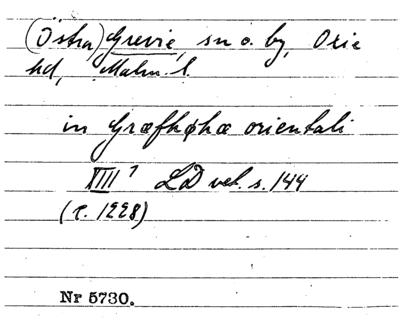 (Östra) Grevie, sn o. by, Oxie
hd, Malm. l.
in Græfhøhæ orientali
XIII¹ LD vet. s. 144
(c. 1228)
Nr 5730.